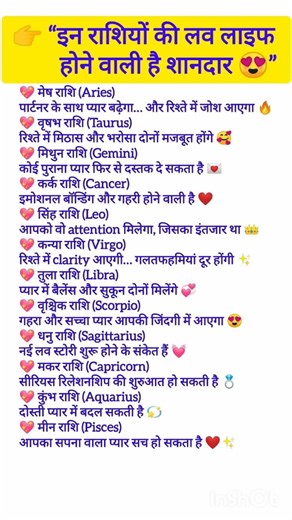 👉 “इन राशियों की लव लाइफ
होने वाली है शानदार 😍”
💖 मेष राशि (Aries)
पार्टनर के साथ प्यार बढ़ेगा... और रिश्ते में जोश आएगा 🔥
💖 वृषभ राशि (Taurus)
रिश्ते में मिठास और भरोसा दोनों मजबूत होंगे 🥰
💖 मिथुन राशि (Gemini)
कोई पुराना प्यार फिर से दस्तक दे सकता है 💌
💖 कर्क राशि (Cancer)
इमोशनल बॉन्डिंग और गहरी होने वाली है ❤️
💖 सिंह राशि (Leo)
आपको वो attention मिलेगा, जिसका इंतजार था 👑
💖 कन्या राशि (Virgo)
रिश्ते में clarity आएगी... गलतफहमियां दूर होंगी ✨
💖 तुला राशि (Libra)
प्यार में बैलेंस और सुकून दोनों मिलेंगे 💞
💖 वृश्चिक राशि (Scorpio)
गहरा और सच्चा प्यार आपकी जिंदगी में आएगा 😍
💖 धनु राशि (Sagittarius)
नई लव स्टोरी शुरू होने के संकेत हैं 💓
💖 मकर राशि (Capricorn)
सीरियस रिलेशनशिप की शुरुआत हो सकती है 💍
💖 कुंभ राशि (Aquarius)
दोस्ती प्यार में बदल सकती है 💫
💖 मीन राशि (Pisces)
आपका सपना वाला प्यार सच हो सकता है ❤️✨